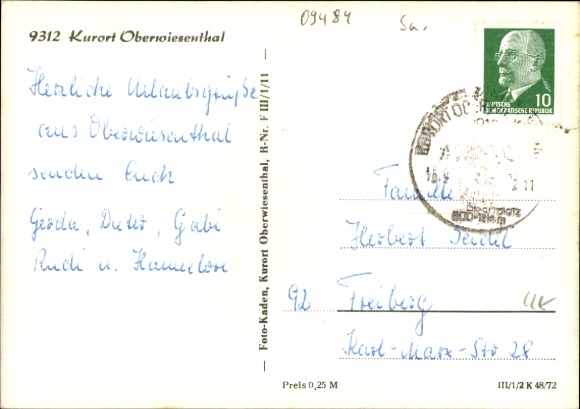 09484 Sa.
9312 Kurort Oberwiesenthal
Herzliche Urlaubsgrüße
aus Oberwiesenthal
senden Euch
Gerda, Dieter, Gabi
Rudi u. Hannelore
Foto-Kaden, Kurort Oberwiesenthal, R-Nr. F III/1/11
10
DEUTSCHE
DEMOKRATISCHE REPUBLIK
KURORT
Familie
Herbert Seidel
92 Freiberg
Karl-Marx-Str 28
Preis 0,25 M
III/1/2 K 48/72